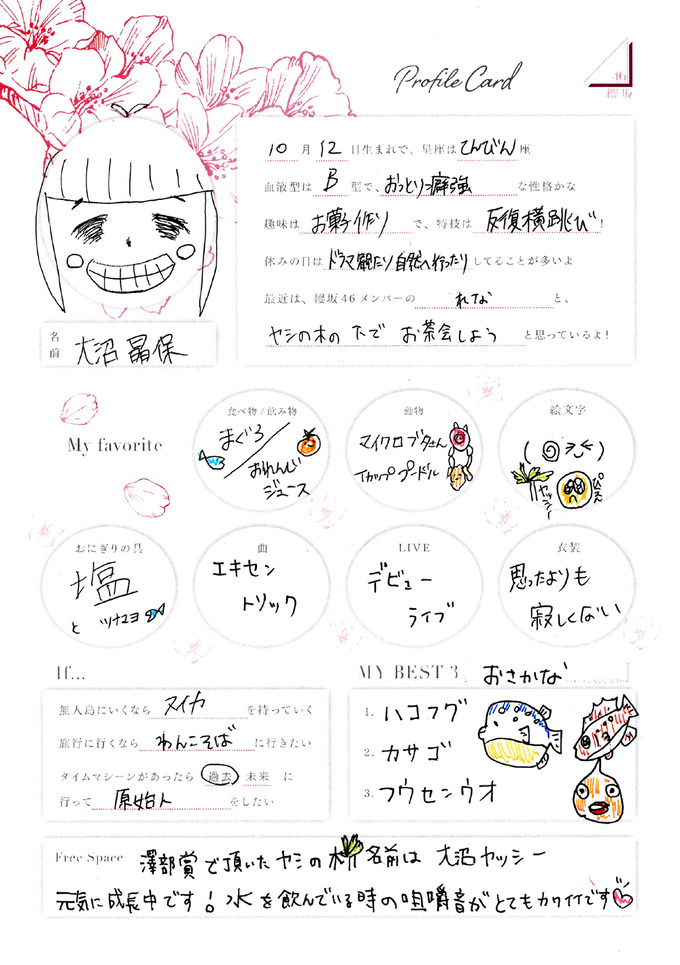 Profile Card
46
櫻坂
10月12日生まれで、星座はてんびん座
血液型はB型で、おっとり:癖強な性格かな
趣味はお菓子作りで、特技は反復横跳び!
休みの日はドラマ観たり自然へ行ったりしてることが多いよ
最近は、櫻坂46メンバーのれなと、
ヤシの木の下でお茶会しようと思っているよ!
名前 大沼晶保
My favorite
食べ物/飲み物
まぐろ/おれんじジュース
動物
マイクロブタさん
ティカッププードル
絵文字
ヤッシー
ぴえん
おにぎりの具
塩
と ツナマヨ
曲
エキセン
トリック
LIVE
デビュー
ライブ
衣装
思ったよりも
寂しくない
If...
無人島にいくならスイカを持っていく
旅行に行くならわんこそばに行きたい
タイムマシーンがあったら過去 未来に
行って原始人をしたい
MY BEST 3 おさかな
1. ハコフグ
2. カサゴ
3. フウセンウオ
Free Space 澤部賞で頂いたヤシの木 名前は 大沼ヤッシー
元気に成長中です!水を飲んでいる時の咀嚼音がとてもカワイイです